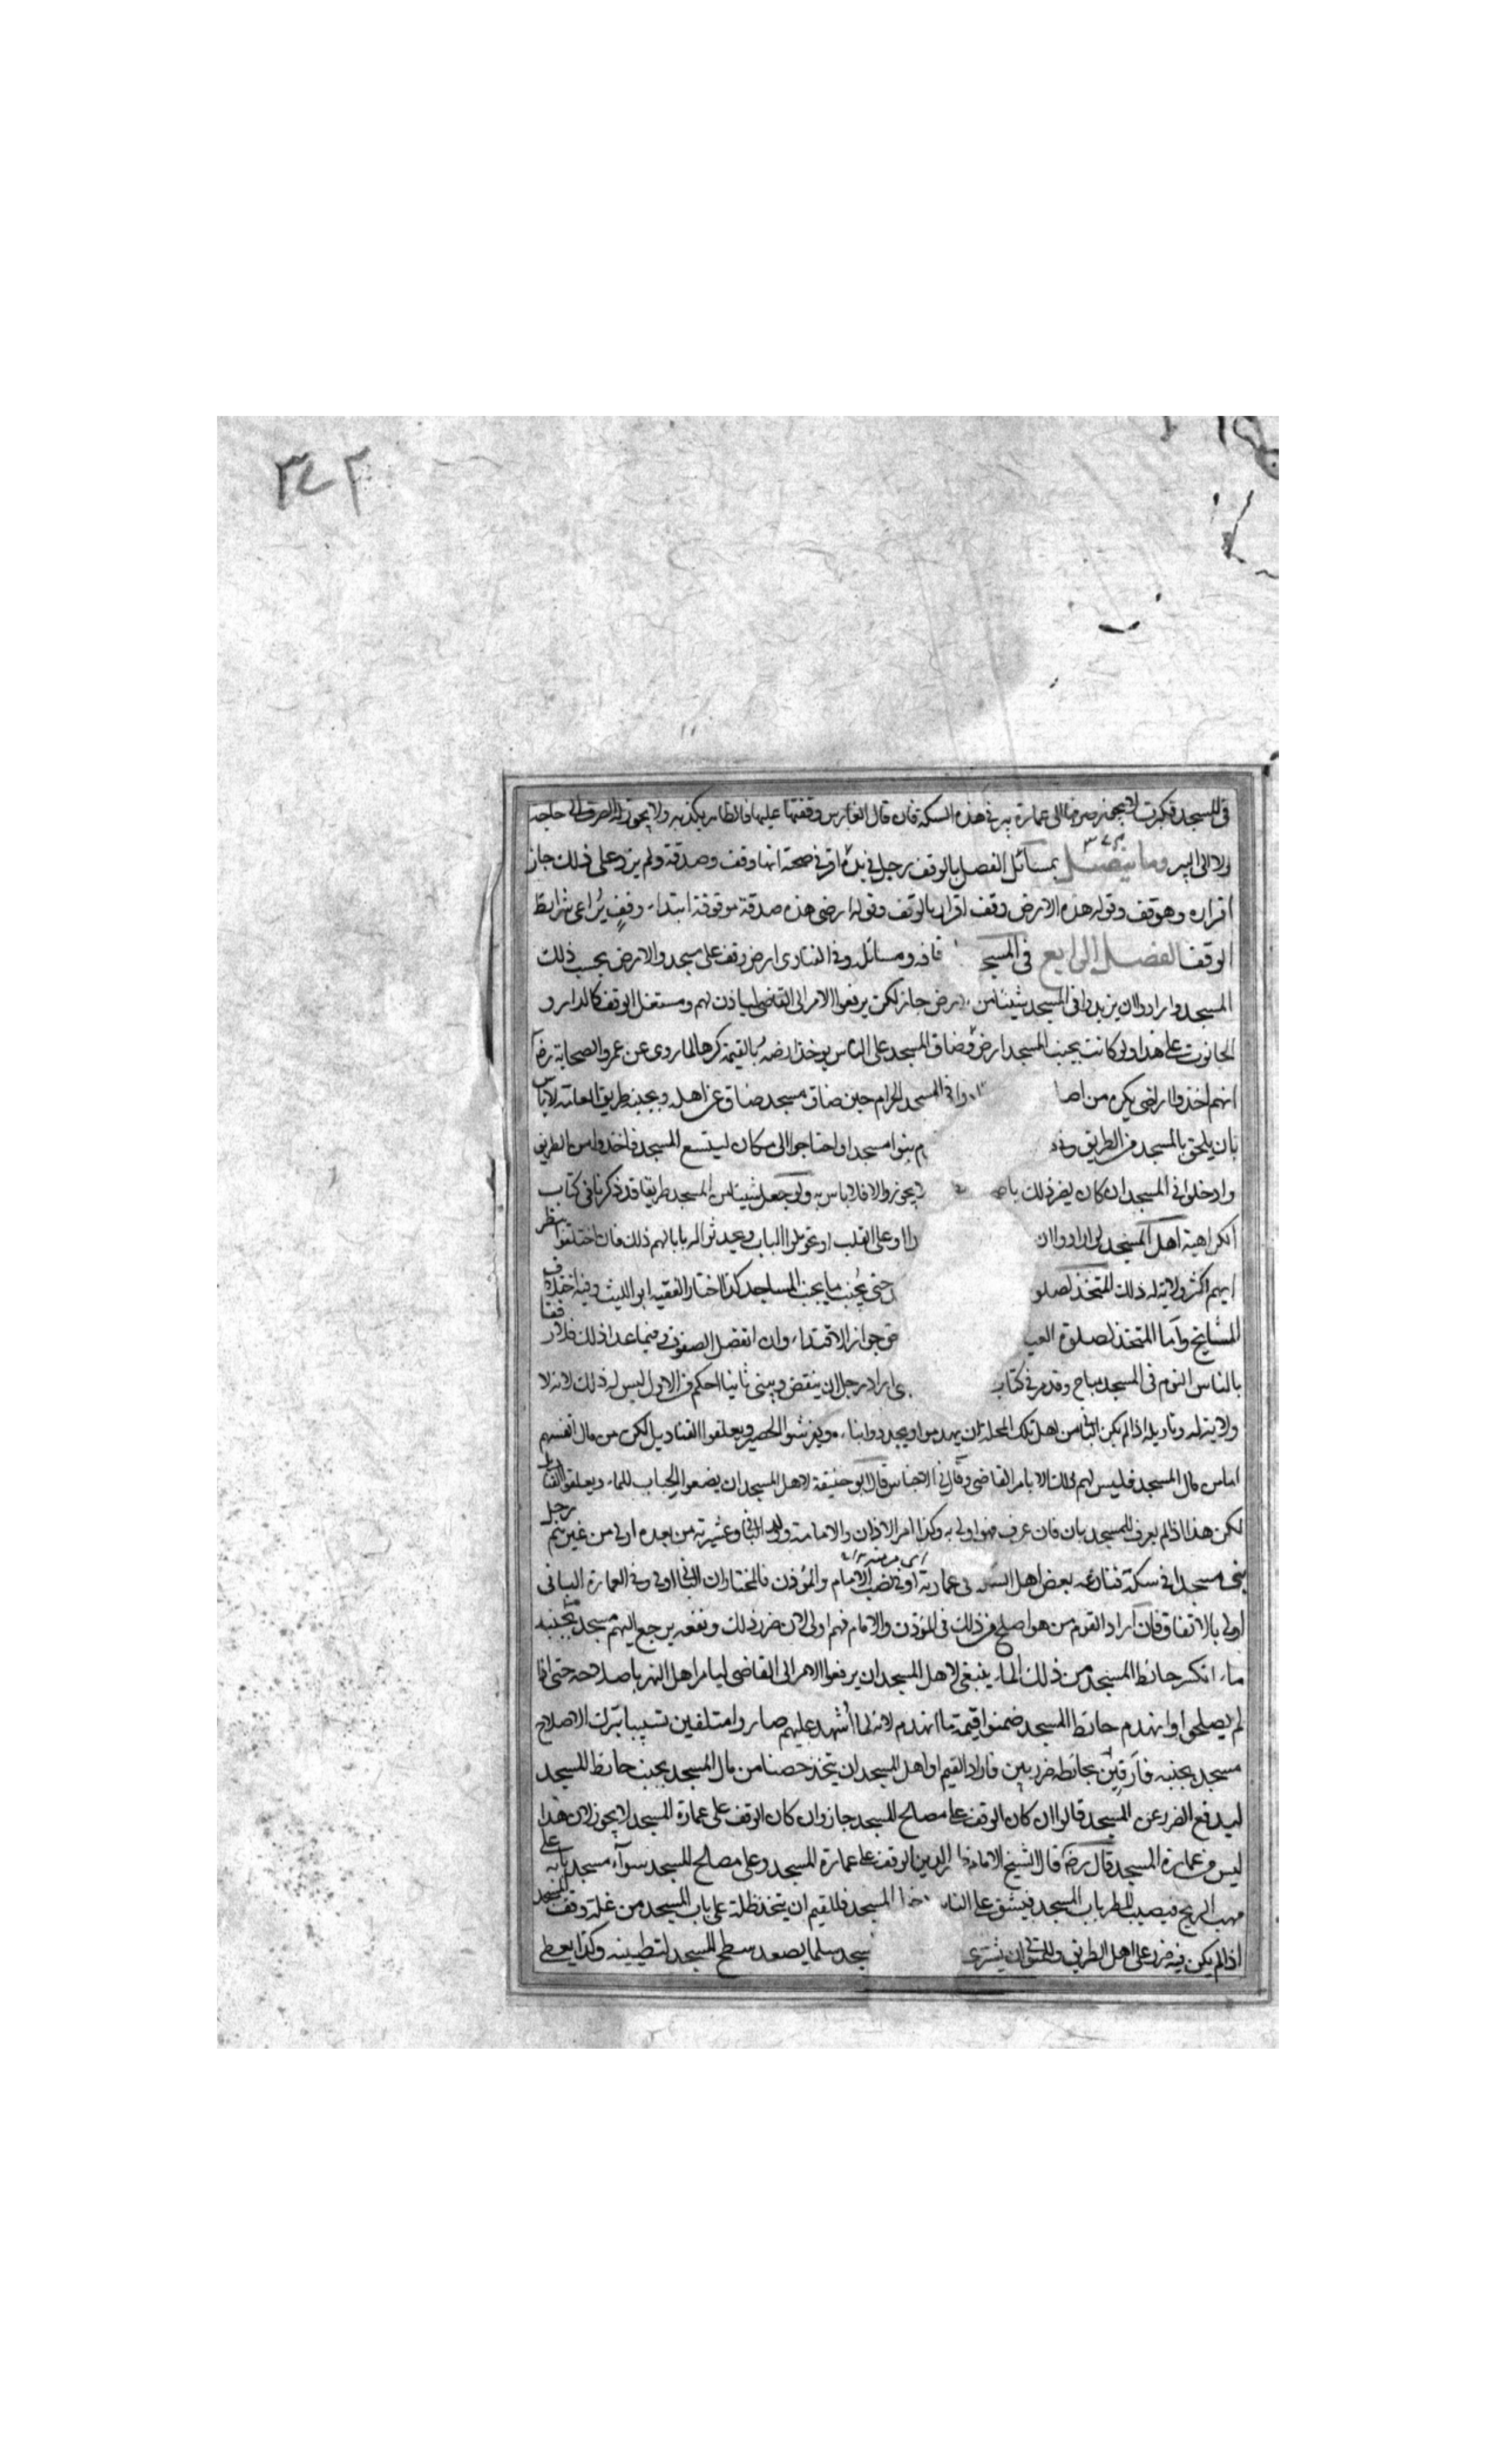 ٣٤٢
في المسجد فكبرت لا يجوز صرفها الى عمارة بير في هذه السكة فان قال الغارس وقفتها عليها فالظاهر يكذبه ولا يجوز له الصرف الى حاجته
ولا الى البير وما يتصل بمسائل الفصل بالوقف رجل في يده اقر في صحته انها وقف وصدقة ولم يزد على ذلك جاز
اقراره وهو وقف وقوله هذه الارض وقف اقرار بالوقف وقوله ارضي هذه صدقة موقوفة ابتداء وقف يراعى شرائط
الوقف الفصل الرابع في المسجد واوقافه ومسائله وفي الفتاوى ارض وقف على مسجد والارض بجنب ذلك
المسجد وارادوا ان يزيدوا في المسجد شيئا من الارض جاز لكن يرفعوا الامر الى القاضي لياذن لهم ومستغل الوقف كالدار و
الحانوت على هذا ولو كانت بجنب المسجد ارض وضاق المسجد على الناس يوخذ ارضه بالقيمة كرها لما روي عن عمر والصحابة رض
انهم اخذوا اراضي بكره من اصحا ادوا في المسجد الحرام حين ضاق مسجد ضاق عن اهله وبجنبه طريق العامة لا باس
بان يلحق بالمسجد من الطريق وفي م بنوا مسجدا واحتاجوا الى مكان ليتسع المسجد فاخذوا من الطريق
وادخلوا في المسجد ان كان يضر ذلك با لا يجوز والا فلا باس به ولو جعل شيئا من المسجد طريقا قد ذكرنا في كتاب
الكراهية اهل المسجد لو ارادوا ان را وعلى القلب او تحويل الباب ويحدثوا له بابا لهم ذلك فان اختلفوا ينظر
ايهم اكثر ولاية له ذلك المتخذ لصلو حتى يجنب ما يجنب المساجد كذا اختار الفقيه ابو الليث وفيه اختلاف
المشايخ واما المتخذ لصلوة العيد في جواز الاقتداء وان انفصل الصفوف وفيما عدا ذلك فلا رفقا
بالناس النوم في المسجد مباح وقد مر في كتاب اراد رجل ان ينقض ويبنى ثانيا احكم من الاول ليس له ذلك لانه لا
ولاية له وتاويله اذا لم يكن الباني من اهل تلك المحلة ان يهدموا ويجددوا بناءه ويفرشوا الحصير ويعلقوا القناديل لكن من مال انفسهم
اما من مال المسجد فليس لهم ذلك الا بامر القاضي وقال في الاجناس قال ابو حنيفة لاهل المسجد ان يضعوا الحباب للماء ويعلقوا القناديل
لكن هذا اذا لم يعرف للمسجد بان فان عرف فهو اولى به وكذا امر الاذان والامامة وولد الباني وعشيرته من بعده اولى من غيرهم رجل
بنى مسجدا في سكة فنازعه بعض اهل السكة في عمارته او في نصب الامام والموذن فالمختار ان الباني اولى وفي العمارة الباني
اولى بالاتفاق فان اراد القوم من هو اصلح من ذلك في الموذن والامام فهم اولى لان ضرر ذلك ونفعه يرجع اليهم مسجد بجنبه
ماء انكسر حائط المسجد من ذلك الماء ينبغي لاهل المسجد ان يرفعوا الامر الى القاضي ليامر اهل النهر باصلاحه حتى اذا
لم يصلحوا وانهدم حائط المسجد ضمنوا قيمة ما انهدم لانه لما اشهد عليهم صاروا متلفين تسببا بترك الاصلاح
مسجد بجنبه فارقين بحائطه ضرر بين فاراد القيم او اهل المسجد ان يتخذ حصنا من مال المسجد بجنب حائط المسجد
ليدفع الضرر عن المسجد قالوا ان كان الوقف على مصالح المسجد جاز وان كان الوقف على عمارة المسجد لا يجوز لان هذا
ليس من عمارة المسجد قال رض قال الشيخ الامام الدين الوقف على عمارة المسجد وعلى مصالح المسجد سواء مسجد بابه على
مهب الريح فيصيب المطر باب المسجد فيشق على الناس المسجد فللقيم ان يتخذ ظلة على باب المسجد من غلة وقف المسجد
اذا لم يكن فيه ضرر على اهل الطريق وللمتولي ان يشترى سجد سلما يصعد سطح المسجد لتطيينه وكذا يعطي